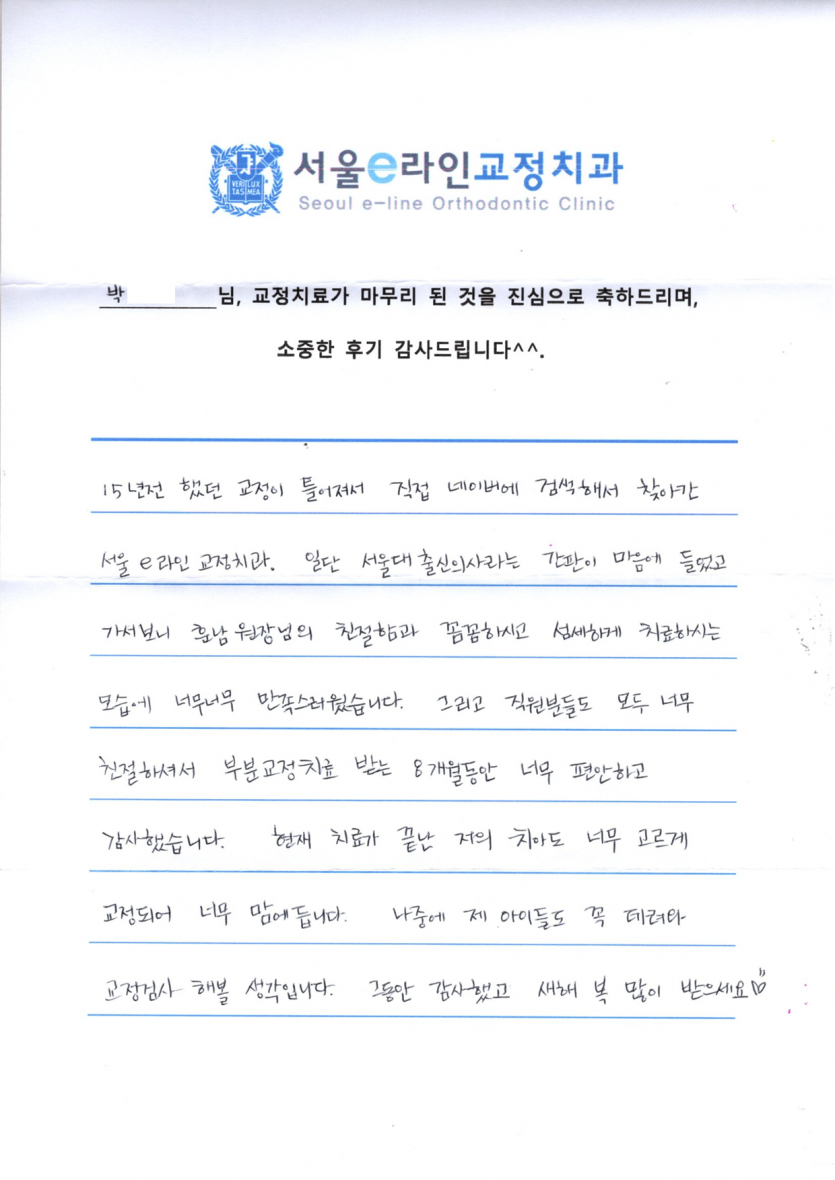 VERI LUX
TAS MEA
서울e라인교정치과
Seoul e-line Orthodontic Clinic
박 님, 교정치료가 마무리 된 것을 진심으로 축하드리며,
소중한 후기 감사드립니다^^.
15년전 했던 교정이 틀어져서 직접 네이버에 검색해서 찾아간
서울 e라인 교정치과. 일단 서울대 출신의사라는 간판이 마음에 들었고
가서보니 훈남 원장님의 친절함과 꼼꼼하시고 섬세하게 치료하시는
모습에 너무너무 만족스러웠습니다. 그리고 직원분들도 모두 너무
친절하셔서 부분교정치료 받는 8개월동안 너무 편안하고
감사했습니다. 현재 치료가 끝난 저의 치아도 너무 고르게
교정되어 너무 맘에듭니다. 나중에 제 아이들도 꼭 데려와
교정검사 해볼 생각입니다. 그동안 감사했고 새해 복 많이 받으세요